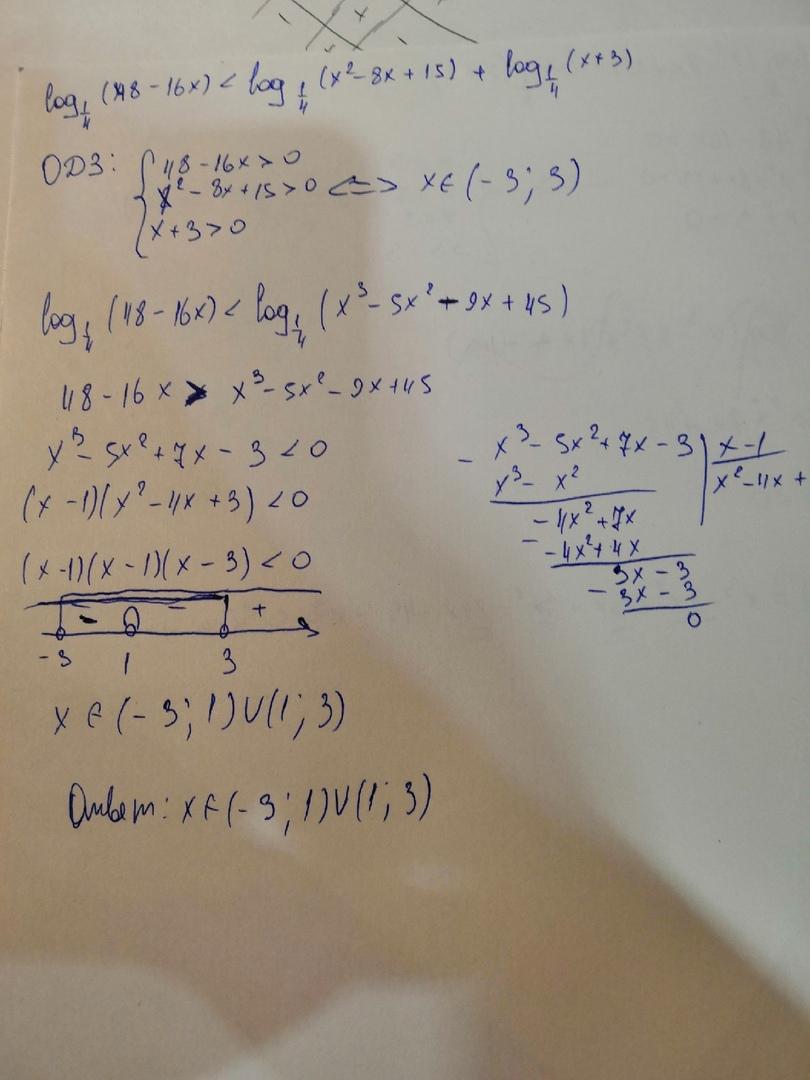 log_{1/4} (48 - 16x) < log_{1/4} (x² - 8x + 15) + log_{1/4} (x + 3)
ОДЗ: { 48 - 16x > 0
x² - 8x + 15 > 0 <=> x ∈ (-3; 3)
x + 3 > 0
log_{1/4} (48 - 16x) < log_{1/4} (x³ - 5x² - 9x + 45)
48 - 16x > x³ - 5x² - 9x + 45
x³ - 5x² + 7x - 3 < 0
(x - 1)(x² - 4x + 3) < 0
(x - 1)(x - 1)(x - 3) < 0
- - +
-3 1 3
x ∈ (-3; 1) ∪ (1; 3)
Ответ: x ∈ (-3; 1) ∪ (1; 3)
- x³ - 5x² + 7x - 3 | x - 1
x³ - x² | x² - 4x +
- 4x² + 7x
- - 4x² + 4x
3x - 3
- 3x - 3
0